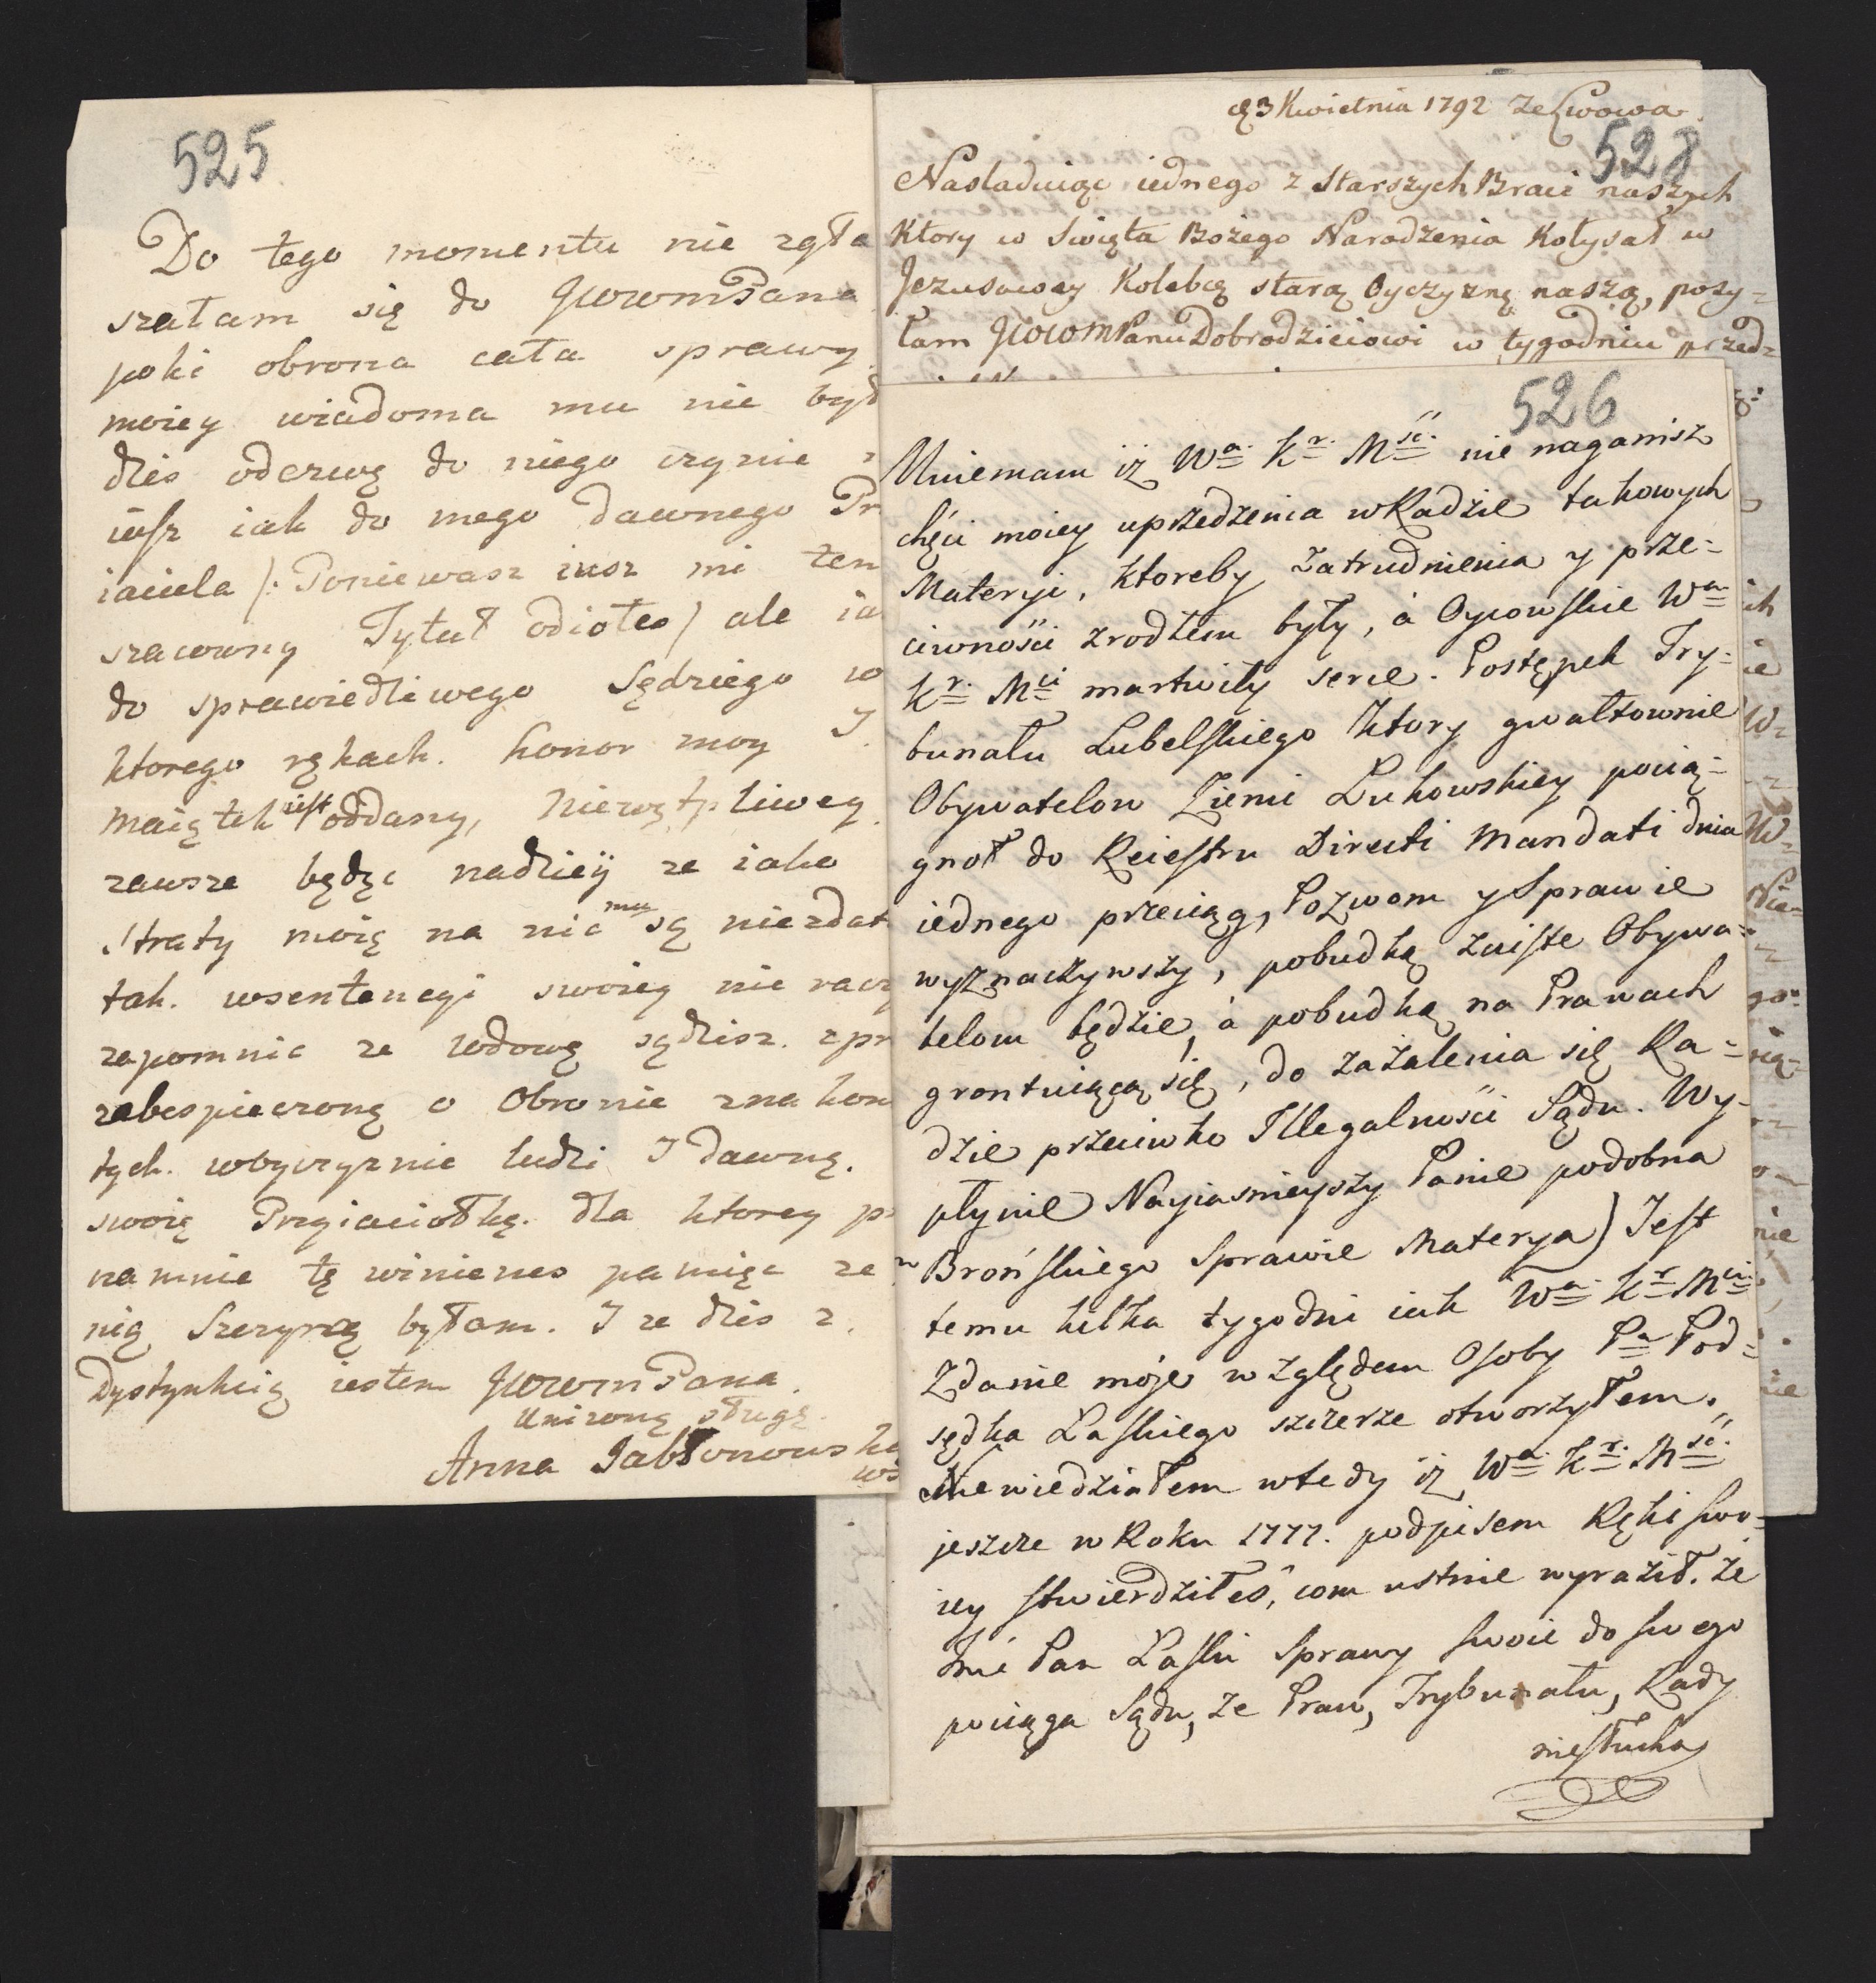 525
Do tego momentu nie zgła
szałam się do JWWMPana
poki obrona cała sprawy
moiey wiadoma mu nie był
dzis odezwę do niego czynie
iusz iak do mego dawnego Pr
iaciela /: Poniewasz iusz mi ten
szacowny Tytuł odiołes / ale ia
do sprawiedliwego Sędziego w
ktorego rękach. honor moy J
Maiątek iest oddany, Niewątpliwey
zawsze będąc nadzieÿ ze iako
straty moię na nic mu są niezdat
tak. wsentencyi swoiey nie racz
zapomnic ze wdowę sądzisz. zpr
zabespieczoną o Obronie znakom
tych. woyczyznie ludzi J dawną.
swoię Przyiaciołkę. dla ktorey p
na mnie tę winienes pamięc ze
nią Szczyrą byłam. J ze dzis z
Dystynkcią iestem JWWMPana.
Unizoną sługą.
Anna Jabłonowska
d 3 Kwietnia 1792 ze Lwowa.
528
Nasladuiąc iednego z Starszych Braci naszych
Ktory w Swięta Bożego Narodzenia Kołysał w
Jezusowey Kolebcę starą Oyczyznę naszą, posy-
łam JWWMPanu Dobrodzieiowi w tygodniu przed-
526
Mniemam iż Wa. Kr. Mść. nie naganisz
chęci moiey uprzedzenia w Radzie takowych
Materyi, ktoreby zatrudnienia y prze-
ciwności zrodłem były, á Oycowskie Wa
Kr. Mci martwiły serce. Postępek Try-
bunału Lubelskiego ktory gwałtownie
Obywatelow Ziemi Łukowskiey pocią-
gnoł do Reiestru Directi Mandati dnia
iednego przeciąg, Pozwom y Sprawie
wyznaczywszy, pobudką zaiste Obywa-
telom będzie, á pobudką na Prawach
gruntuiącą się, do zażalenia się Ra-
dzie przeciwko Illegalności Sądu. Wy-
płynie Nayiasnieyszy Panie podobna
w Brońskiego Sprawie Materya) Jest
temu kilka tygodni iak Wa. Kr. Mci
Zdanie moje względem Osoby Pa Pod-
sędka Laskiego szczerze otworzyłem.
Niewiedziałem wtedy iż Wa. Kr. Mść.
jeszcze w Roku 1777. podpisem Ręki swo-
iey stwierdziłeś, com ustnie wyraził. że
Imć Pan Laski Sprawy swoie do swego
pociąga Sądu, że Praw, Trybunału, Rady
niesłucha